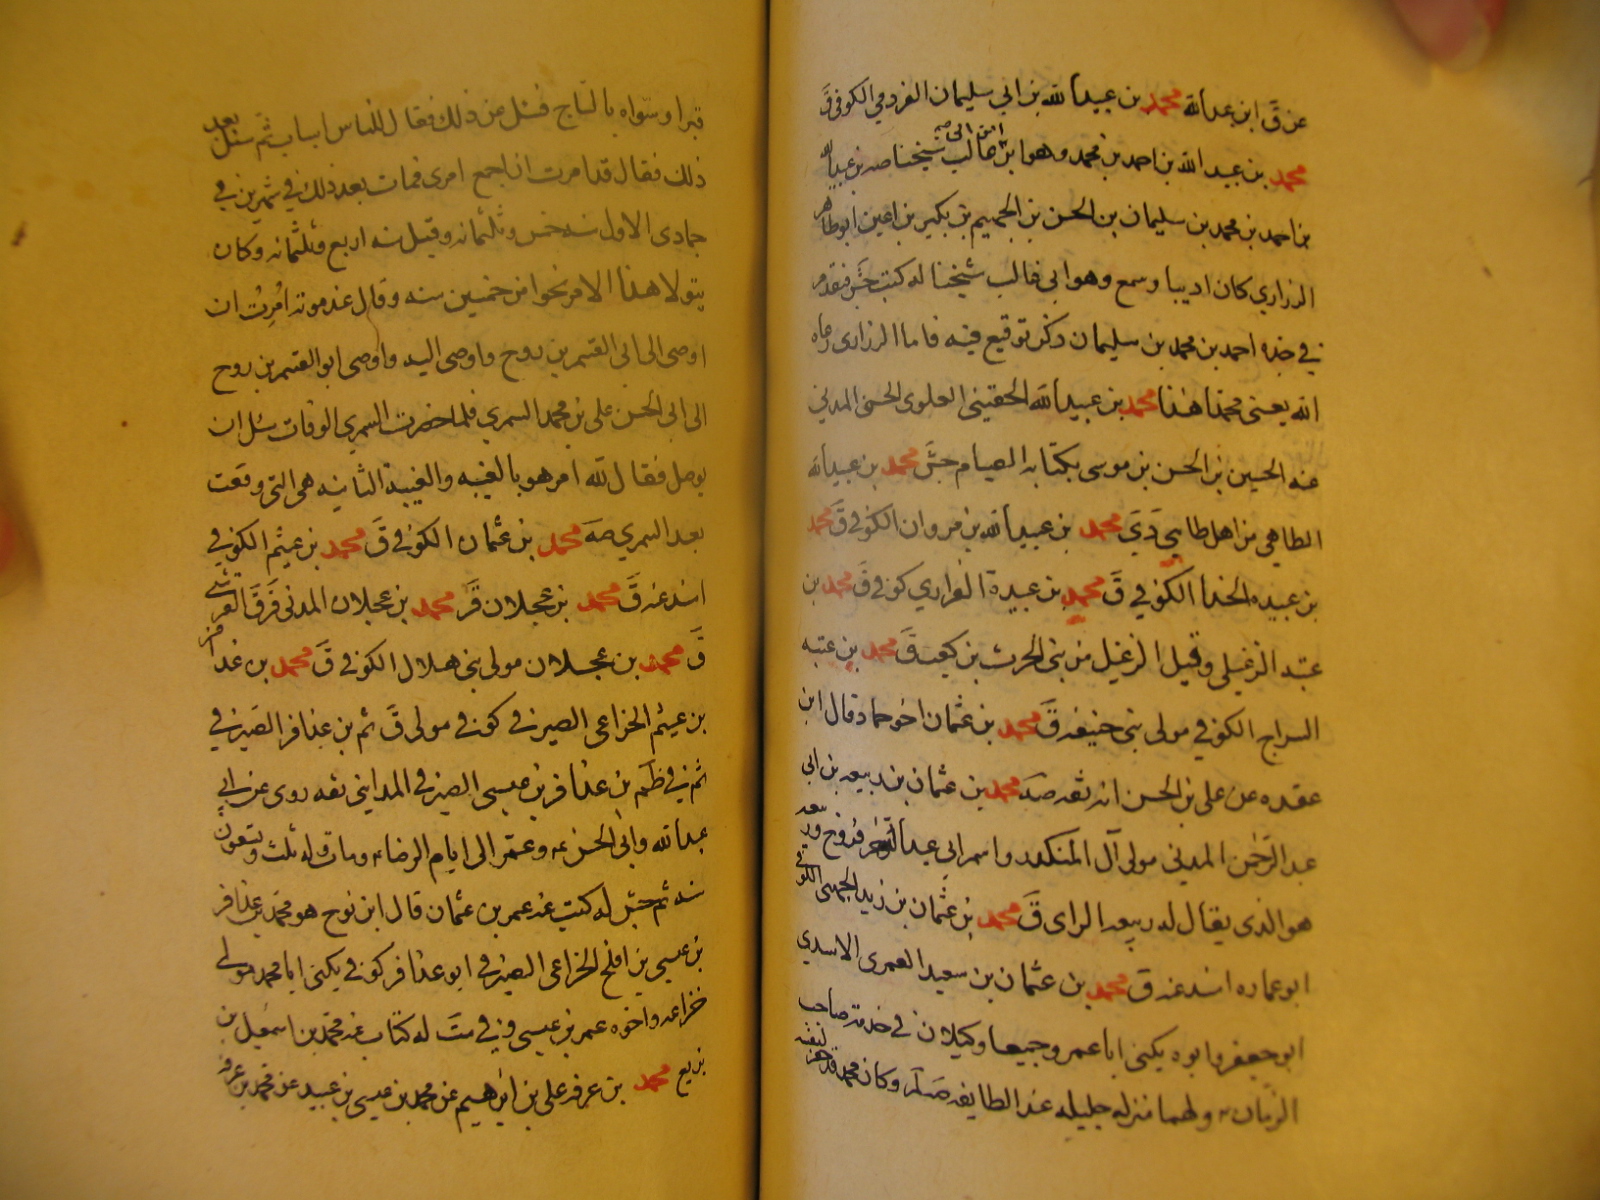 عن قَ ابن عبدالله محمد بن عبيدالله بن ابي سليمان العزرمي الكوفي قَ
محمد بن عبيد الله بن احمد بن محمد وهو ابن ابن ابي غالب شيخنا بن عبيدالله
بن احمد بن محمد بن سليمان بن الحسن بن الجهيم بن بكير بن اعين ابوطاهر
الزراري كان اديبا وسمع وهو ابي غالب شيخنا له كتب جش فتقدم
في جده احمد بن محمد بن سليمان ذكر توقيع فيه فاما الزراري رعاه
الله يعني محمدا هذا محمد بن عبيدالله الحقيني العلوي الحسني المدني
عنه الحسين بن الحسن بن موسى بكتابه الصيام جش محمد بن عبيدالله
الطاهي من اهل طاهي دَيَ محمد بن عبيدالله بن مروان الكوفي قَ محمد
بن عبيده الحذا الكوفي قَ محمد بن عبيدة الفزاري كوفي قَ محمد بن
عتبه الزغيلي وقيل الزغيل من بني الحرث بن كعب قَ محمد بن عتبه
السراج الكوفي مولى بني حنيفه قَ محمد بن عثمان اخو حماد قال ابن
عقده عن علي بن الحسن انه ثقه صَه محمد بن عثمان بن ربيعه بن ابي
عبد الرحمن المدني مولى آل المنكدر واسم ابي عبد الرحمن فروخ وربيعه
هو الذي يقال له ربيعه الراي قَ محمد بن عثمان بن زيد الجهني الكوفي
ابو عماره اسند عنه ق محمد بن عثمان بن سعيد العمري الاسدي
ابو جعفر وابوه يكنى ابا عمرو جميعا وكيلان في خدمة صاحب
الزمان ع ولهما منزله جليله عند الطايفه صَه لم وكان محمد قد حفر لنفسه
قبرا وسواه بالساج فسئل عن ذلك فقال للناس اسباب ثم سئل بعد
ذلك فقال قد امرت ان اجمع امري فمات بعد ذلك في شهرين في
جمادى الاول سنه خمس وثلثمائه وقيل سنه اربع وثلثمائه وكان
يتولا هذا الامر نحوا من خمسين سنه وقال عند موته اُمِرتُ ان
اوصي الى ابي القسم بن روح واوصى اليه واوصى ابو القسم بن روح
الى ابي الحسن علي بن محمد السمري فلما حضرت السمري الوفات سئل ان
يوصل فقال لله امر هو بالغيبه والغيبة الثانيه هي التي وقعت
بعد السمري صَه محمد بن عثمان الكوفي قَ محمد بن عيثم الكوفي
اسند عنه قَ محمد بن عجلان قَر محمد بن عجلان المدني قَر قَ القرشي
قَ محمد بن عجلان مولى بني هلال الكوفي قَ محمد بن عذافر
بن عيثم الخزاعي الصيرفي كوفي مولى قَ ثم بن عذافر الصيرفي
ثم في ظم بن عذافر بن عيسى الصيرفي المدايني ثقه روى عن ابي
عبدالله وابي الحسن ع وعمّر الى ايام الرضا ع ومات وله ثلث وتسعون
سنه ثم جش له كتب عنه عمر بن عثمان قال ابن نوح هو محمد بن عذافر
بن عيسى بن افلح الخزاعي الصيرفي ابو عذافر كوفي يكنى ابا محمد مولى
خزاعه واخوه عمر بن عيسى وفي ست له كتاب عنه محمد بن اسمعيل بن
بزيع محمد بن عرفه علي بن ابرهيم عن محمد بن عيسى بن عبيد عن محمد بن عرفه